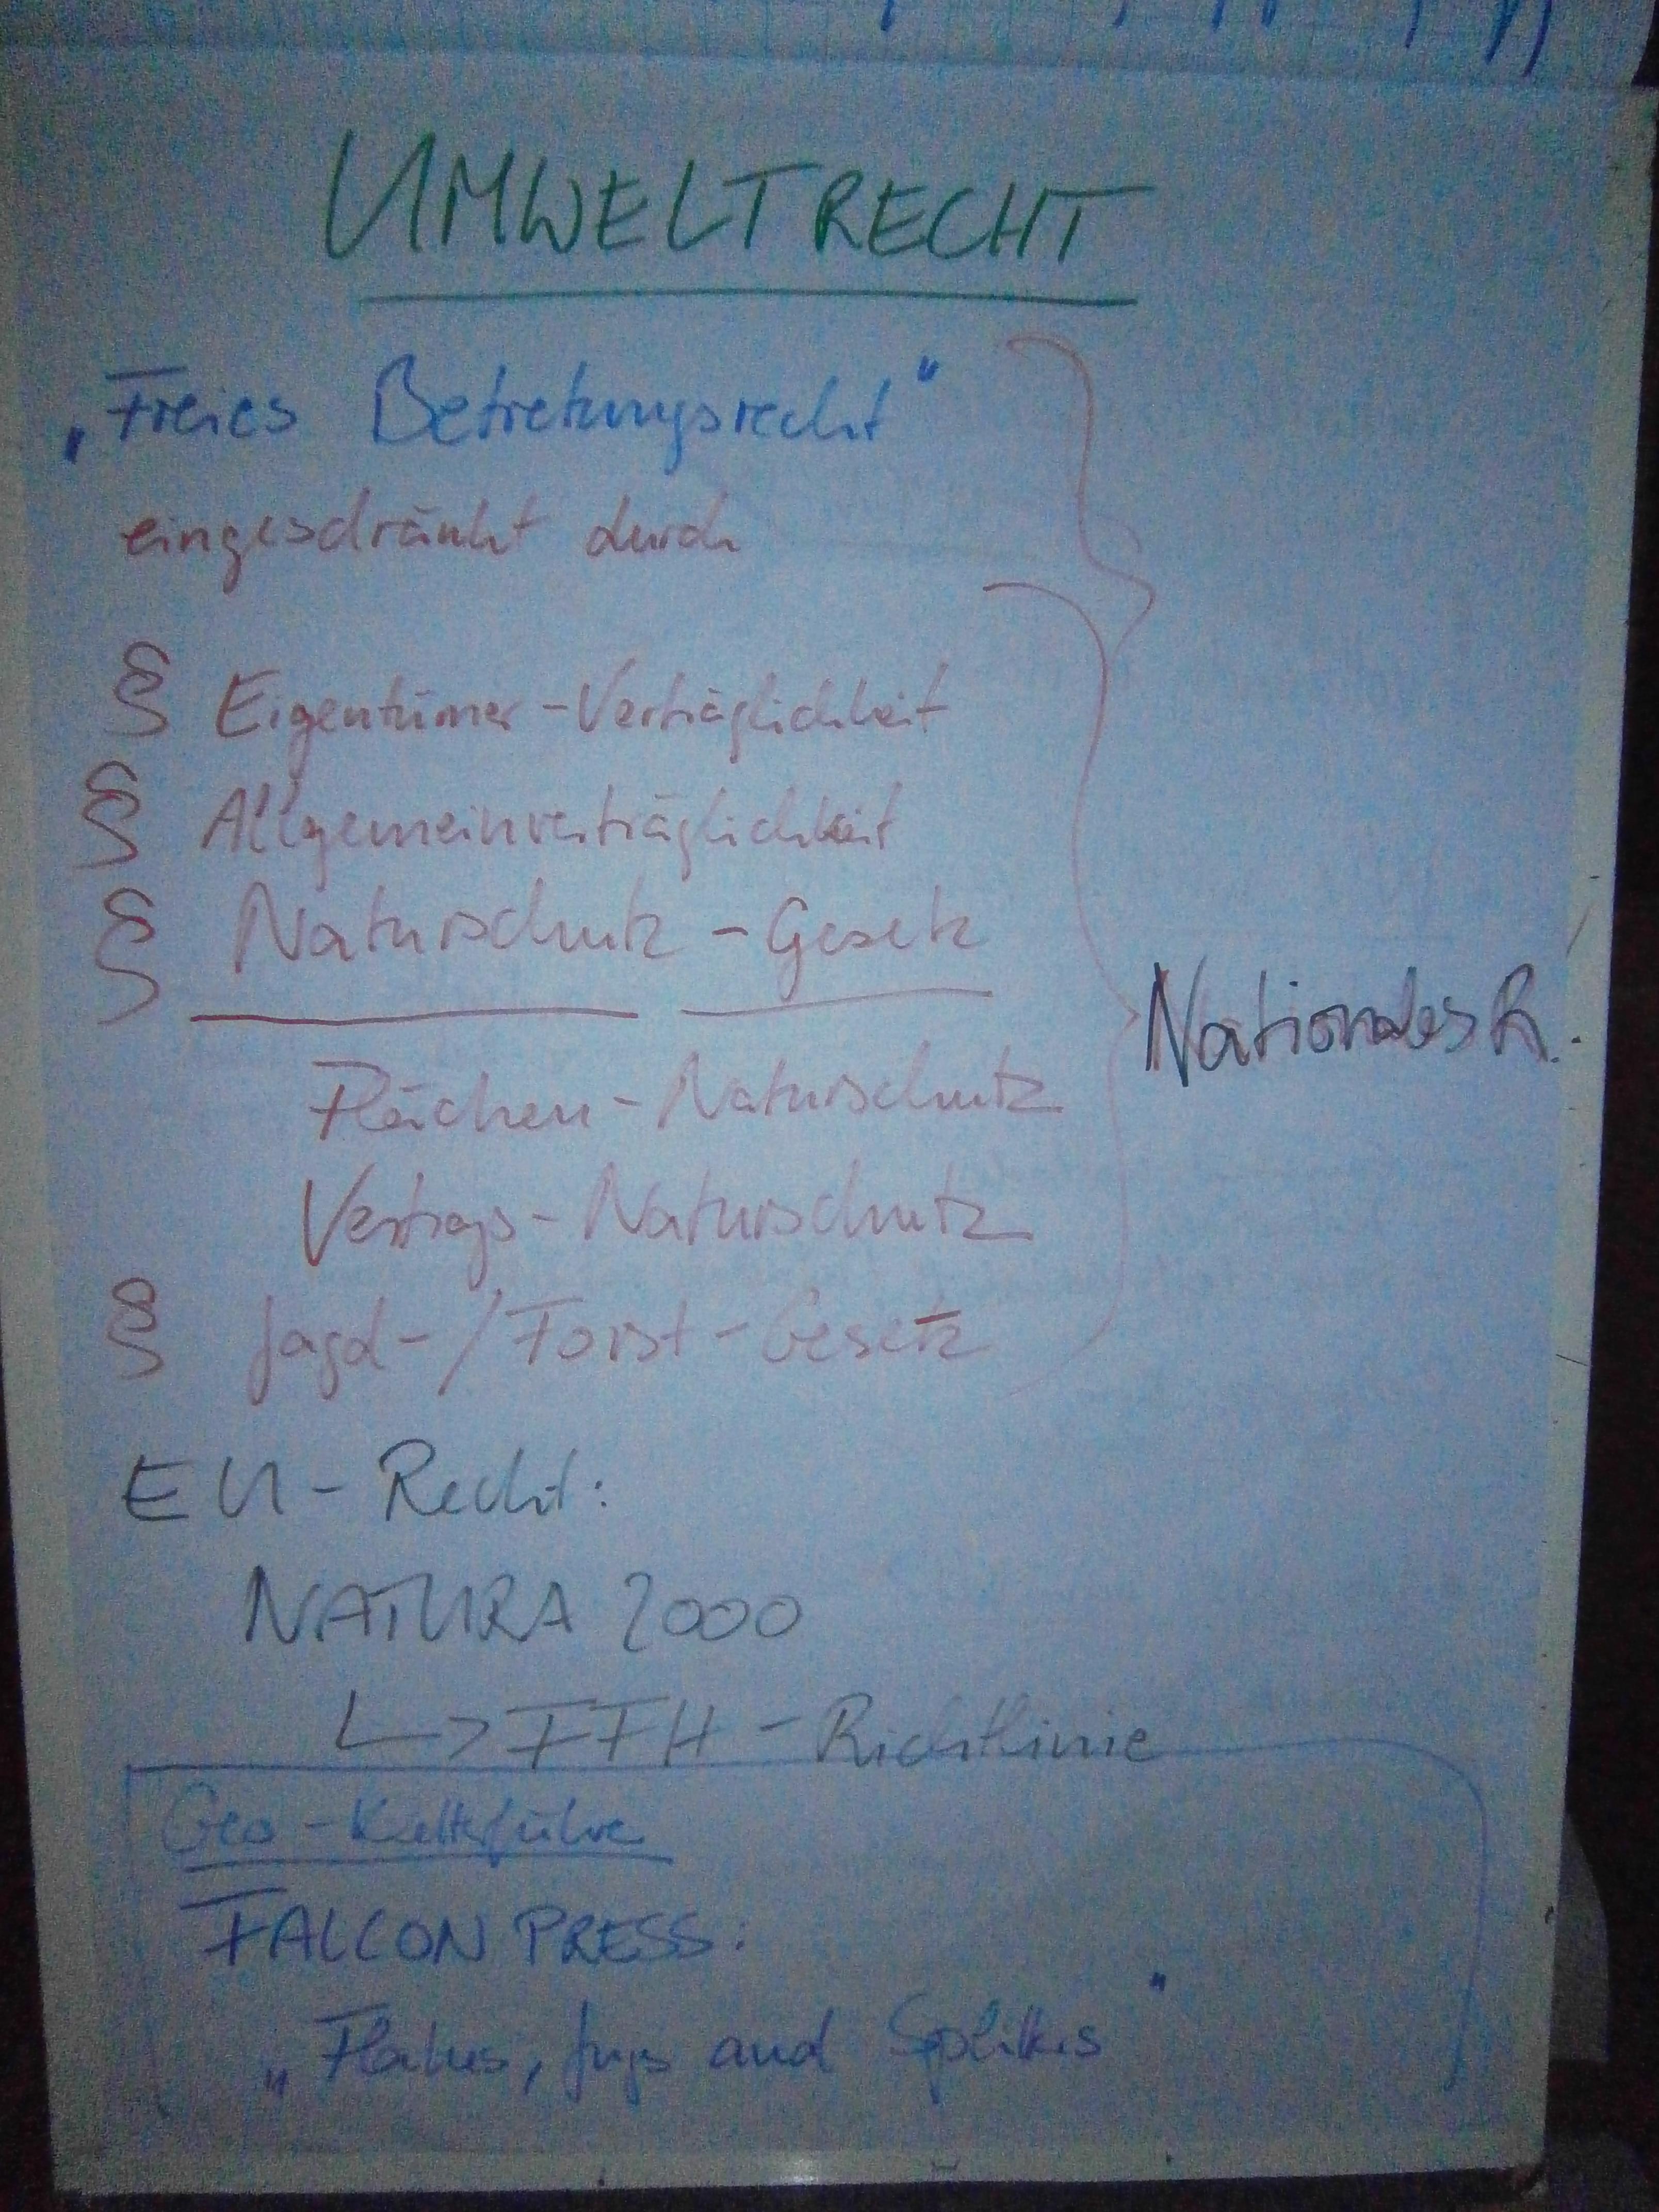 UMWELTRECHT
„Freies Betretungsrecht"
eingeschränkt durch
§ Eigentümer-Verträglichkeit
§ Allgemeinverträglichkeit
§ Naturschutz-Gesetz
Nationales R.
Flächen-Naturschutz
Vertrags-Naturschutz
§ Jagd-/Forst-Gesetz
EU-Recht:
NATURA 2000
↳ FFH-Richtlinie
Geo-Kletterführer
FALCON PRESS:
„Flakes, Jugs and Splitters"